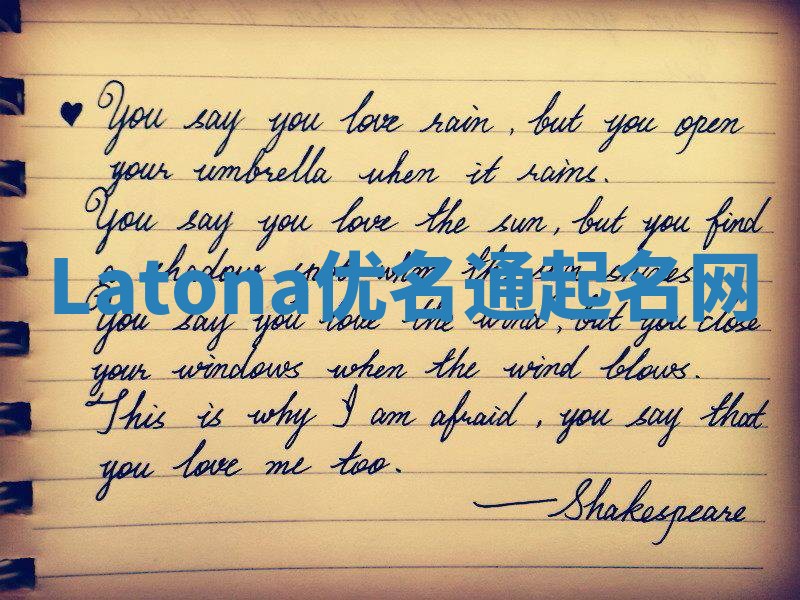 ♥ You say you love rain, but you open
your umbrella when it rains.
You say you love the sun, but you find
a shadow spot when the sun shines.
Latona优名通起名网
You say you love the wind, but you close
your windows when the wind blows.
This is why I am afraid, you say that
you love me too.
—Shakespeare